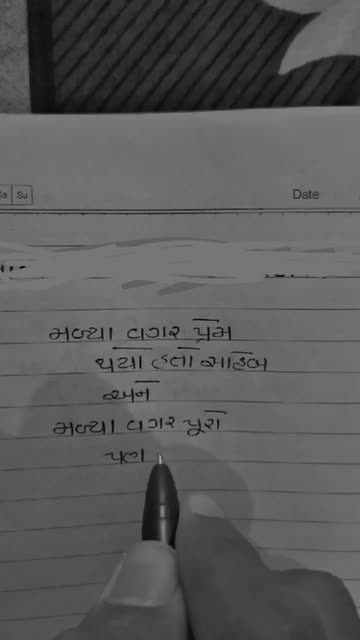 Sa Su
Date
મળ્યા વગર પ્રેમ
થયો હતો સાહેબ
અને
મળ્યા વગર પૂરો
પણ